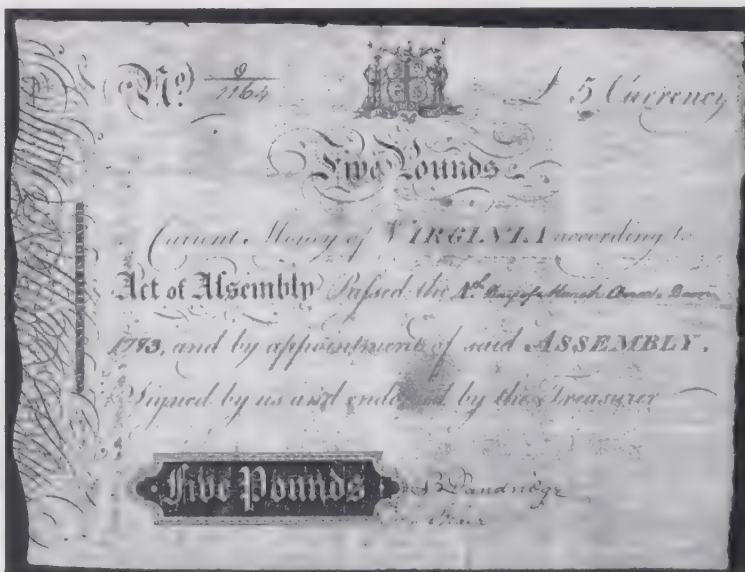 No. 1164 £ 5 Currency
Five Pounds
Current Money of VIRGINIA according to
Act of Assembly Passed the 4th Day of March Anno. Dom
1773, and by appointment of said ASSEMBLY.
Signed by us and endorsed by the Treasurer
Five Pounds
Dandridge
Blair